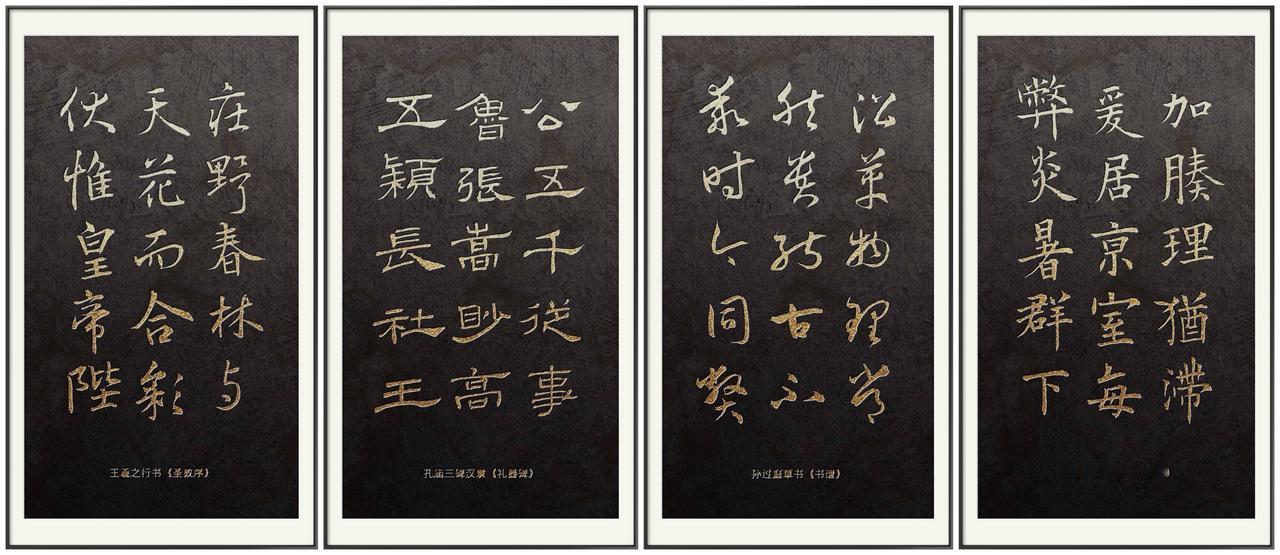 庄野春林与
天花而合彩
伏惟皇帝陛
王羲之行书《圣教序》
公五千從事
魯張嵩眇高
五穎長社王
孔庙三碑汉隶《礼器碑》
沿革物理常
然贵能古不
乖时今同弊
孙过庭草书《书谱》
加腠理猶滯
爰居京室每
弊炎暑群下